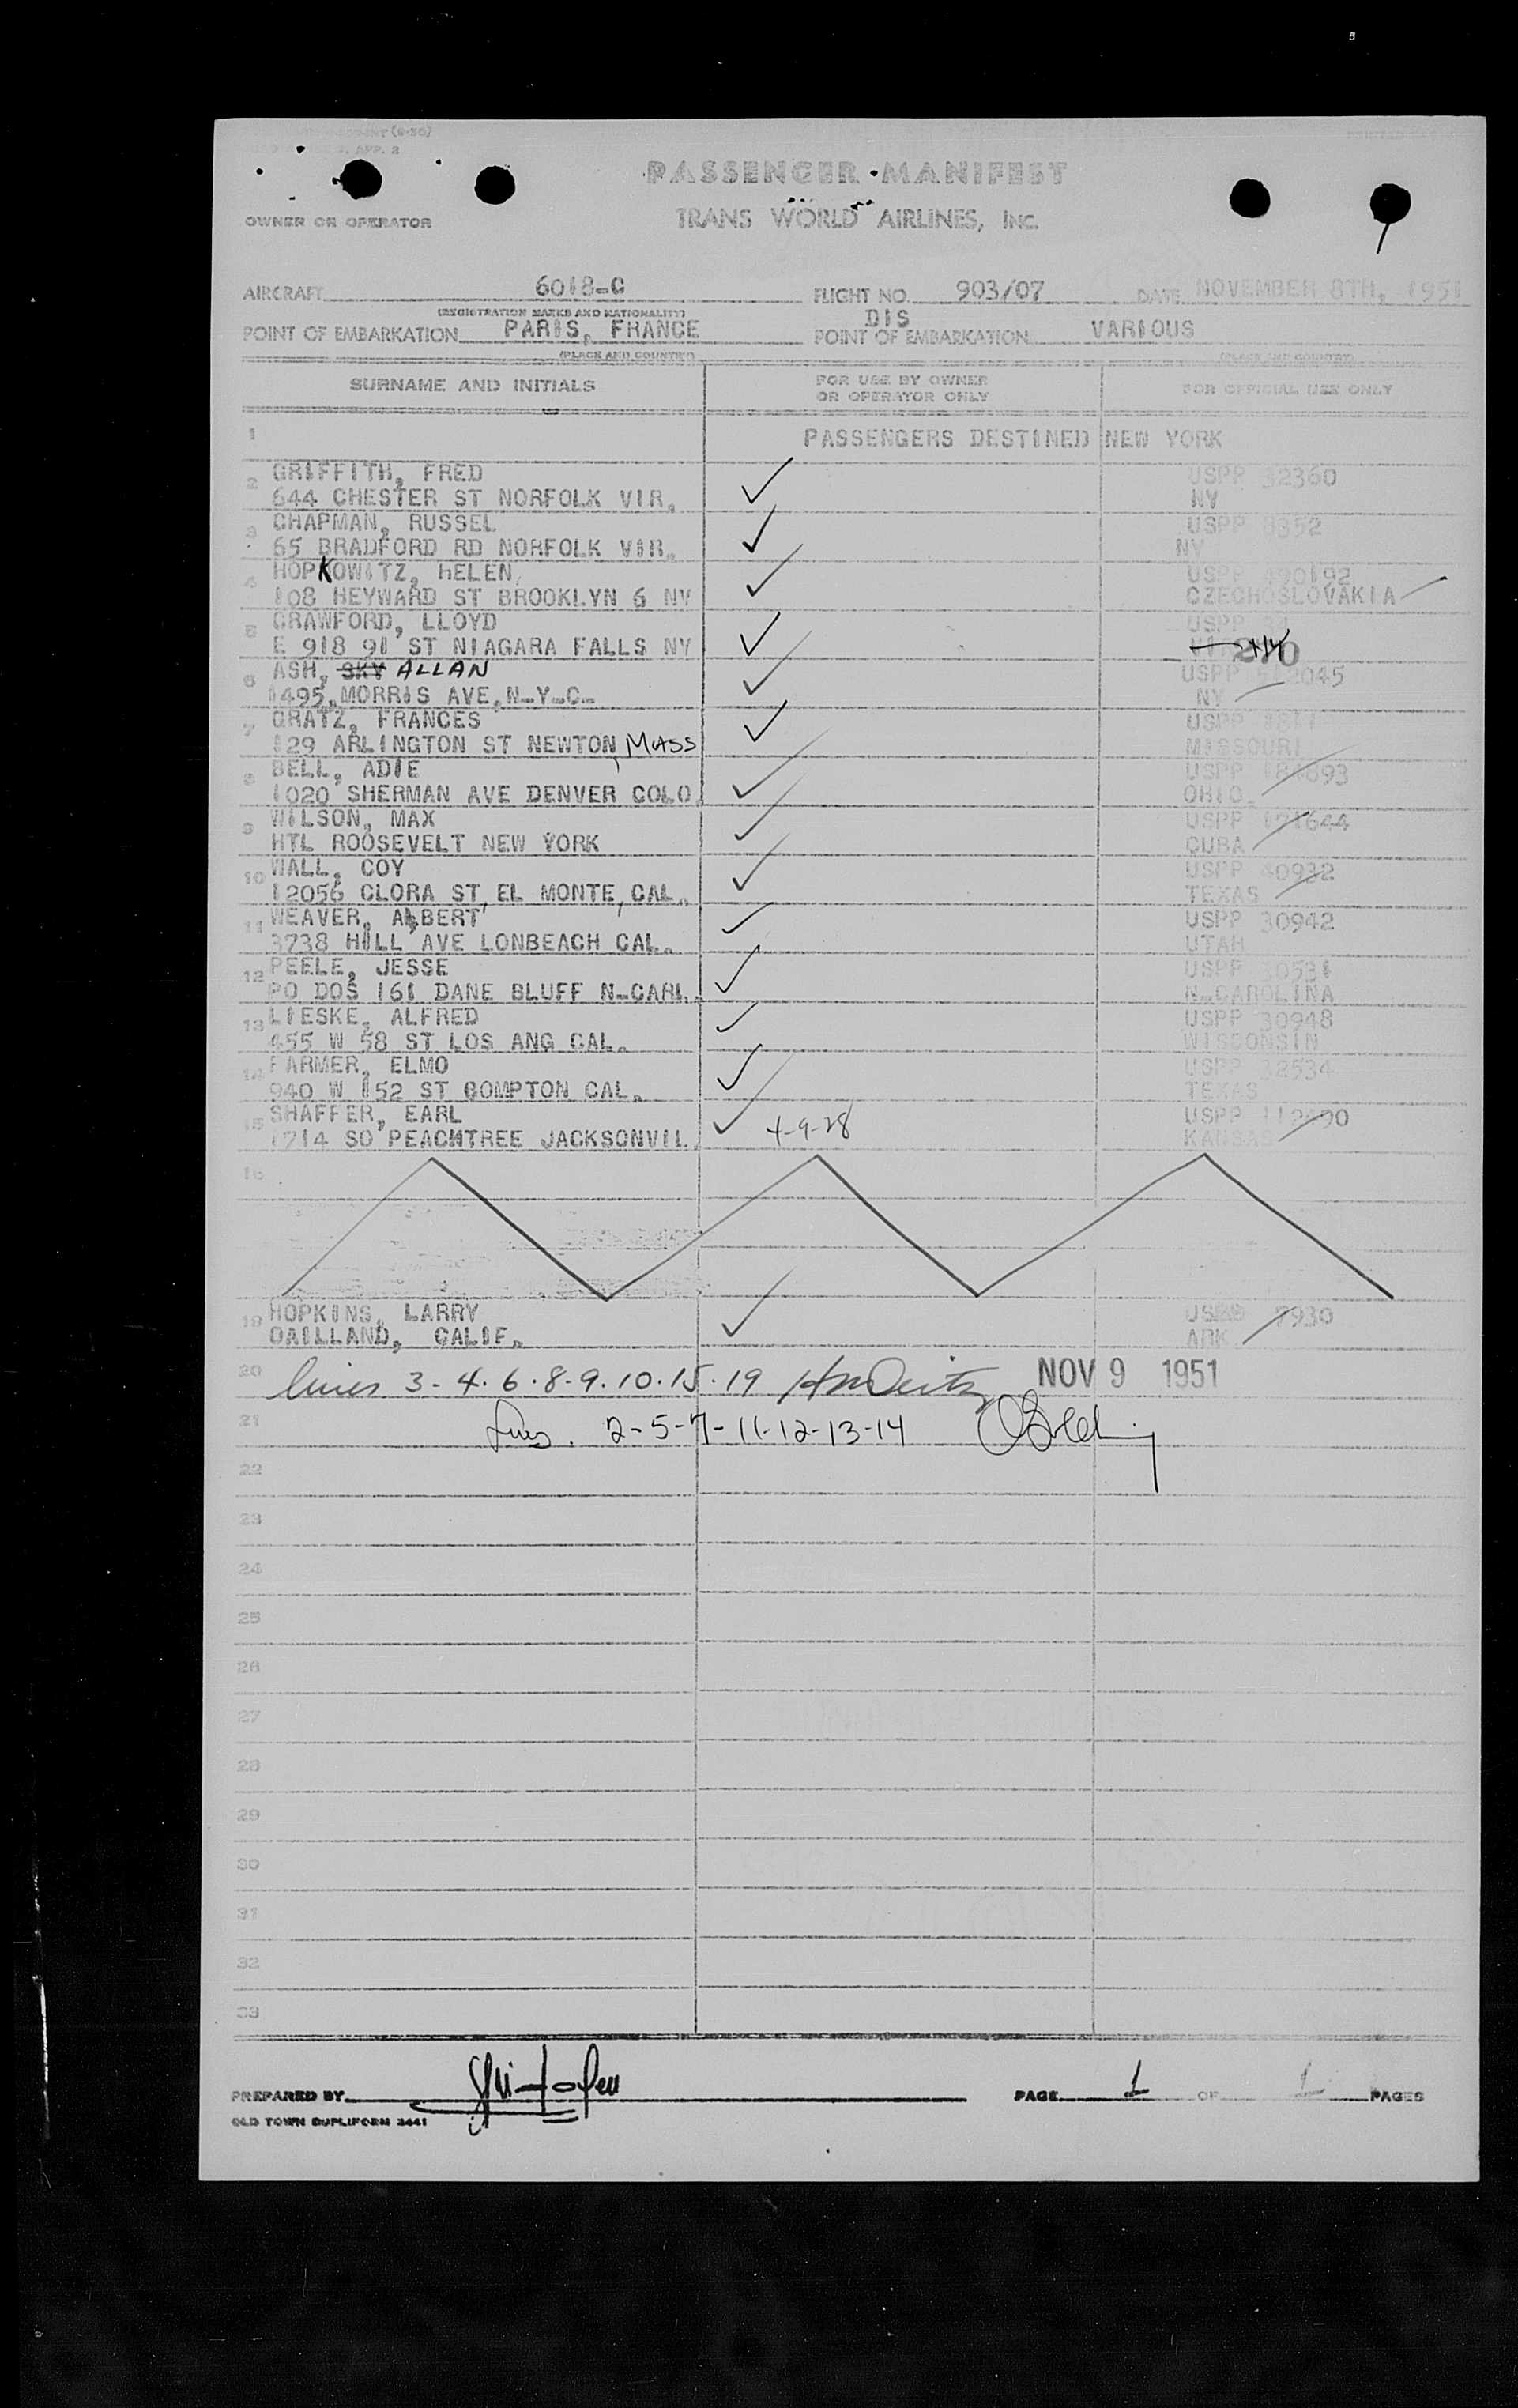 (8-50)
APP. 2
PASSENGER MANIFEST
OWNER OR OPERATOR
TRANS WORLD AIRLINES, INC.
AIRCRAFT 6018-C FLIGHT NO. 903/07 DATE NOVEMBER 8TH, 1951
(REGISTRATION MARKS AND NATIONALITY)
DIS
POINT OF EMBARKATION PARIS, FRANCE POINT OF EMBARKATION VARIOUS
(PLACE AND COUNTRY) (PLACE AND COUNTRY)
SURNAME AND INITIALS FOR USE BY OWNER OR OPERATOR ONLY FOR OFFICIAL USE ONLY
1 PASSENGERS DESTINED NEW YORK
2 GRIFFITH, FRED USPP 32360
644 CHESTER ST NORFOLK VIR. NY
3 CHAPMAN, RUSSEL USPP 8352
65 BRADFORD RD NORFOLK VIR. NY
4 HOPKOWITZ, HELEN USPP 490192
108 HEYWARD ST BROOKLYN 6 NY CZECHOSLOVAKIA
5 CRAWFORD, LLOYD USPP
E 918 91 ST NIAGARA FALLS NY
6 ASH, SKY ALLAN USPP 2045
1495, MORRIS AVE, N-Y-C- NY
7 GRATZ, FRANCES USPP
129 ARLINGTON ST NEWTON, MASS MISSOURI
8 BELL, ADIE USPP
1020 SHERMAN AVE DENVER COLO. OHIO.
9 WILSON, MAX USPP 171644
HTL ROOSEVELT NEW YORK CUBA
10 WALL, COY USPP 40932
12056 CLORA ST, EL MONTE, CAL. TEXAS
11 WEAVER, ALBERT USPP 30942
3738 HILL AVE LONBEACH CAL. UTAH
12 PEELE, JESSE USPP 30531
PO DOS 161 DANE BLUFF N-CARL. N-CAROLINA
13 LIESKE, ALFRED USPP 30948
455 W 58 ST LOS ANG CAL. WISCONSIN
14 FARMER, ELMO USPP 32534
940 W 152 ST COMPTON CAL. TEXAS
15 SHAFFER, EARL USPP
1714 SO PEACHTREE JACKSONVIL. 4-9-28 KAUSAS
16
19 HOPKINS, LARRY 7930
OAILLAND, CALIF. ARK
20 lines 3-4.6.8-9.10.15.19 NOV 9 1951
21 2-5-7-11-12-13-14
22
23
24
25
26
27
28
29
30
31
32
33
PREPARED BY PAGE 1 OF 1 PAGES
OLD TOWN DUPLIFORM 3441